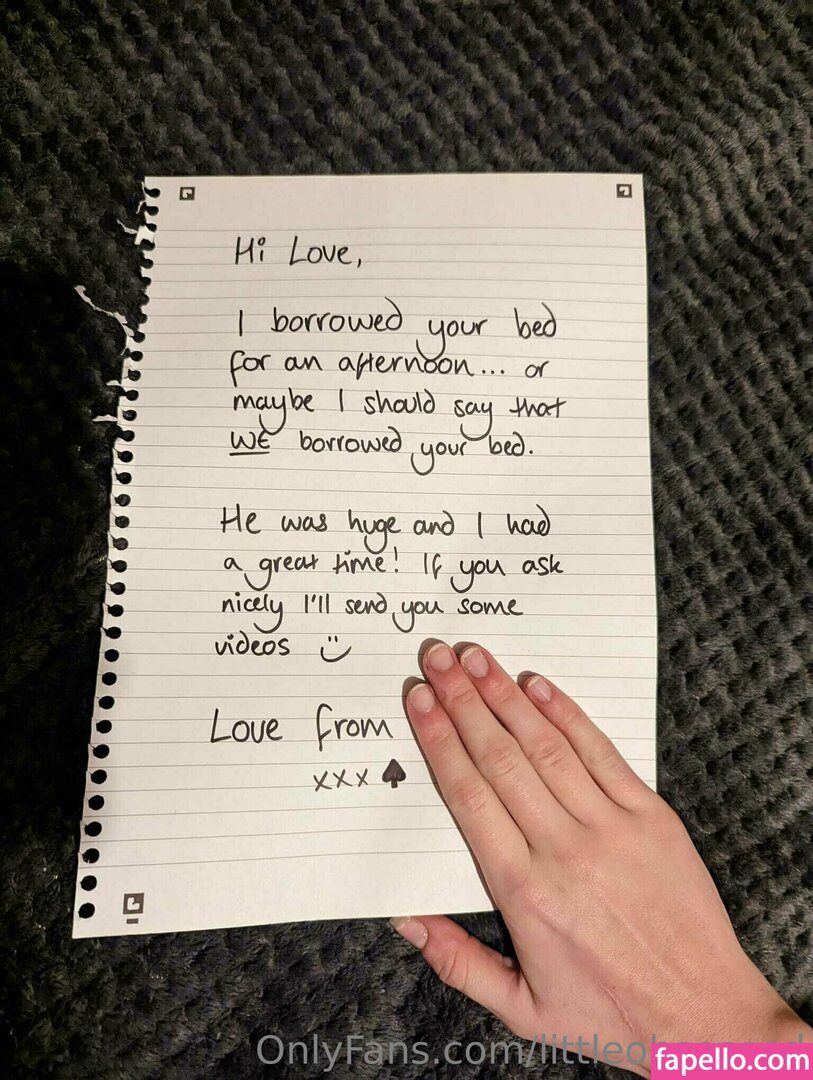 Hi Love,
I borrowed your bed
for an afternoon... or
maybe I should say that
WE borrowed your bed.
He was huge and I had
a great time! If you ask
nicely I'll send you some
videos :)
Love from
xxx ♠
OnlyFans.com/
fapello.com